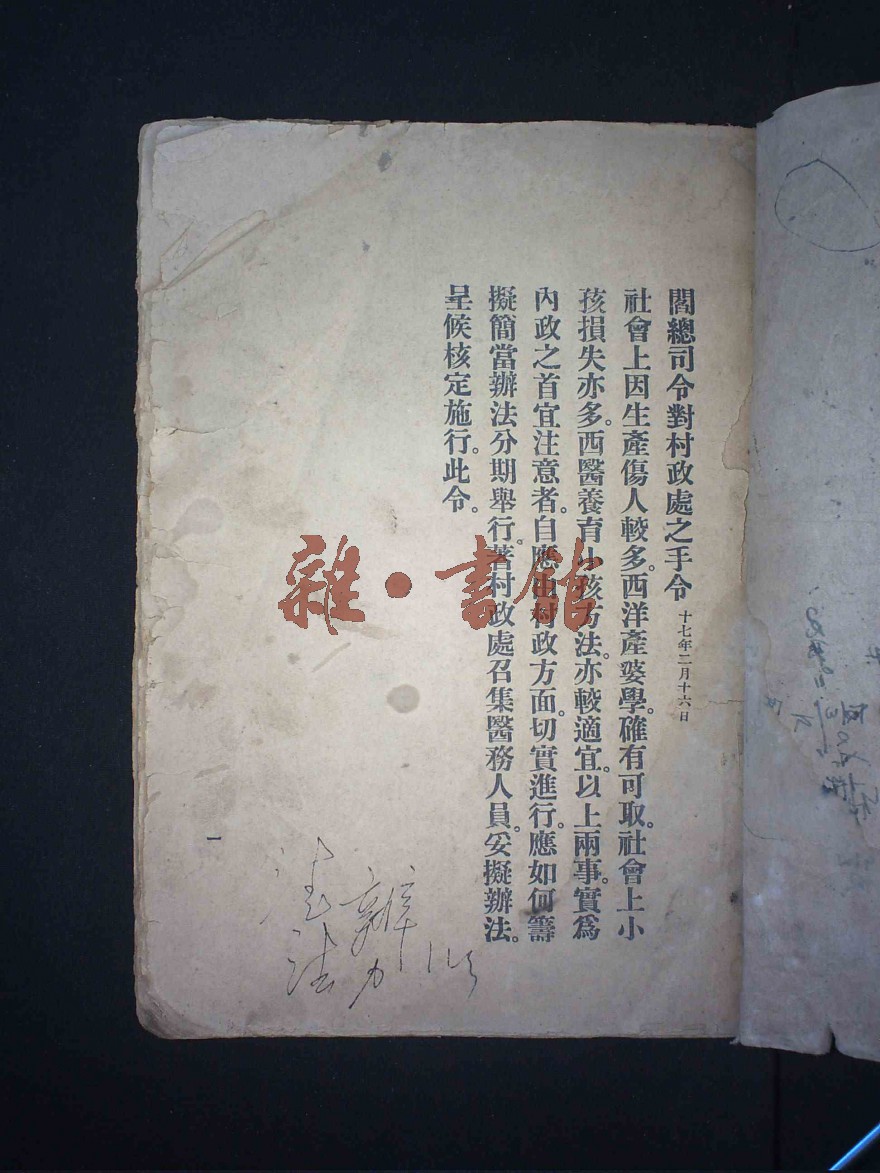 閻總司令對村政處之手令 十七年二月十六日
社會上因生產傷人較多。西洋產婆學。確有可取。社會上小
孩損失亦多。西醫養育小孩方法。亦較適宜。以上兩事。實為
內政之首宜注意者。自應由村政方面。切實進行。應如何籌
擬簡當辦法分期舉行。著村政處召集醫務人員。妥擬辦法。
呈候核定施行。此令。
一
雜·書館
辦
法